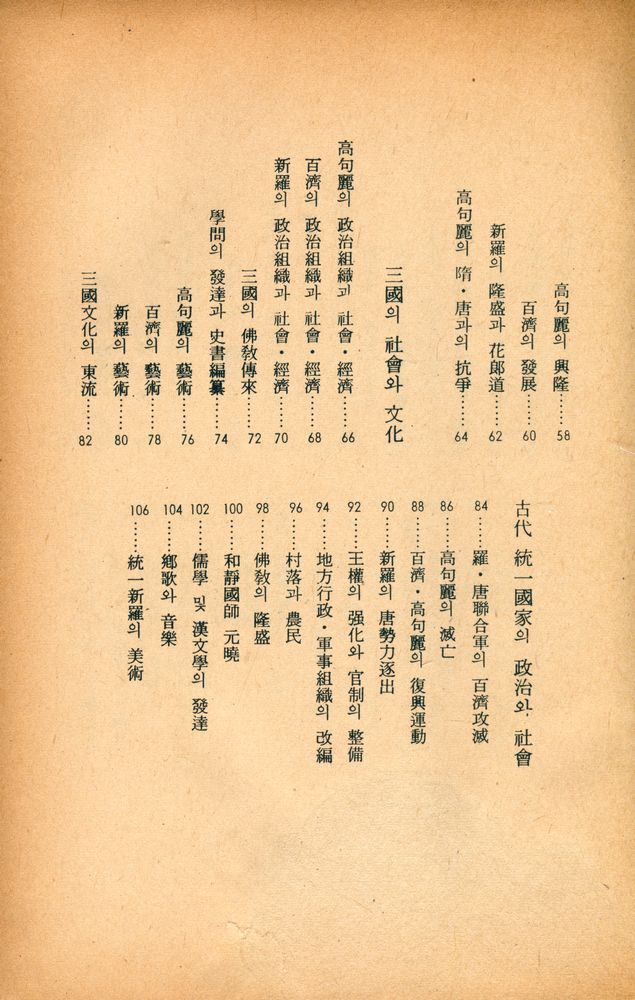 高句麗의 興隆……58
百濟의 發展……60
新羅의 隆盛과 花郞道……62
高句麗의 隋·唐과의 抗爭……64
三國의 社會와 文化
高句麗의 政治組織과 社會·經濟……66
百濟의 政治組織과 社會·經濟……68
新羅의 政治組織과 社會·經濟……70
三國의 佛敎傳來……72
學問의 發達과 史書編纂……74
高句麗의 藝術……76
百濟의 藝術……78
新羅의 藝術……80
三國文化의 東流……82
古代 統一國家의 政治와 社會
84……羅·唐聯合軍의 百濟攻滅
86……高句麗의 滅亡
88……百濟·高句麗의 復興運動
90……新羅의 唐勢力逐出
92……王權의 强化와 官制의 整備
94……地方行政·軍事組織의 改編
96……村落과 農民
98……佛敎의 隆盛
100……和靜國師 元曉
102……儒學 및 漢文學의 發達
104……鄕歌와 音樂
106……統一新羅의 美術